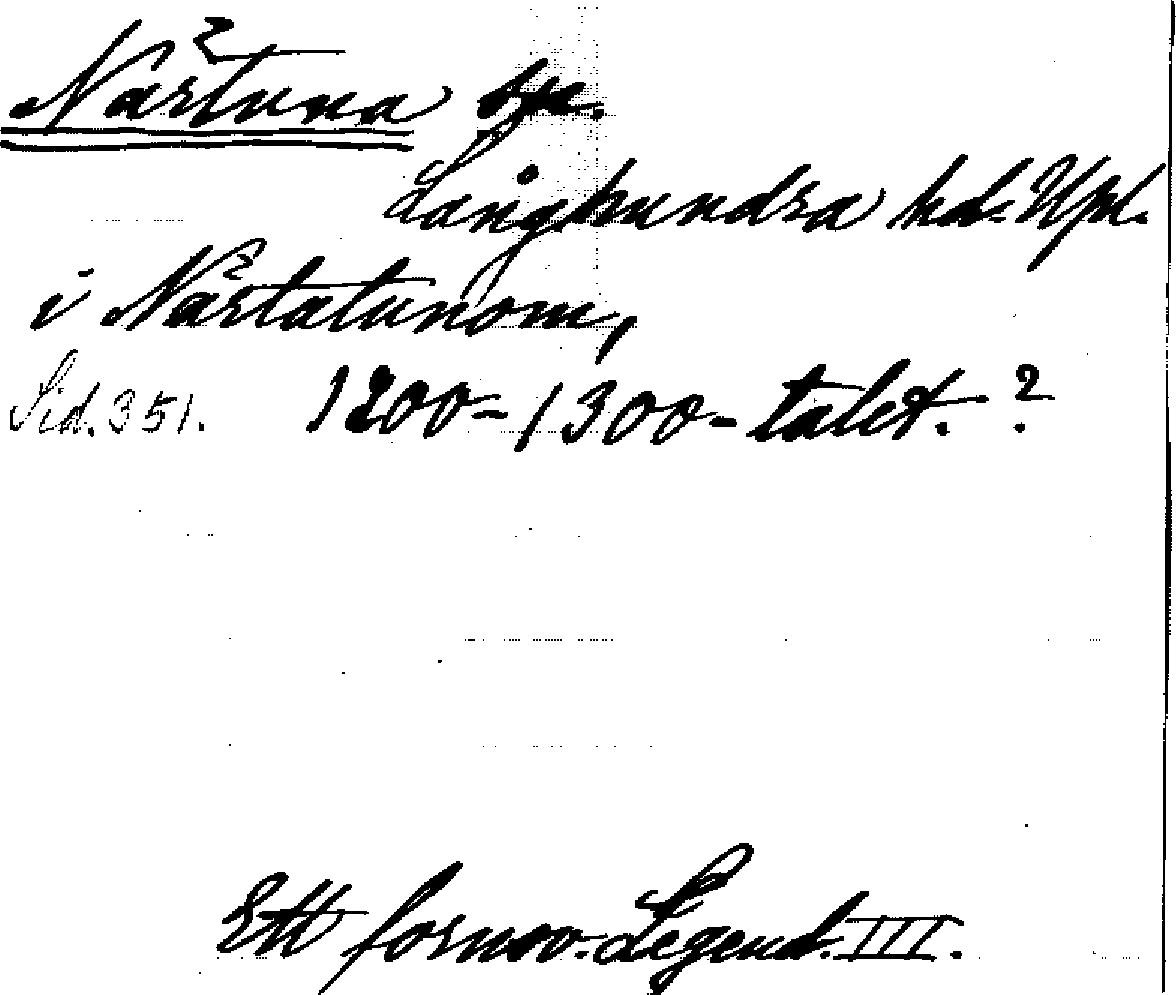 Närtuna sn.
Långhundra hd. Upl.
i Närtatunom,
Sid. 351. 1200-1300-talet. ?
Ett fornsv. Legend. III.